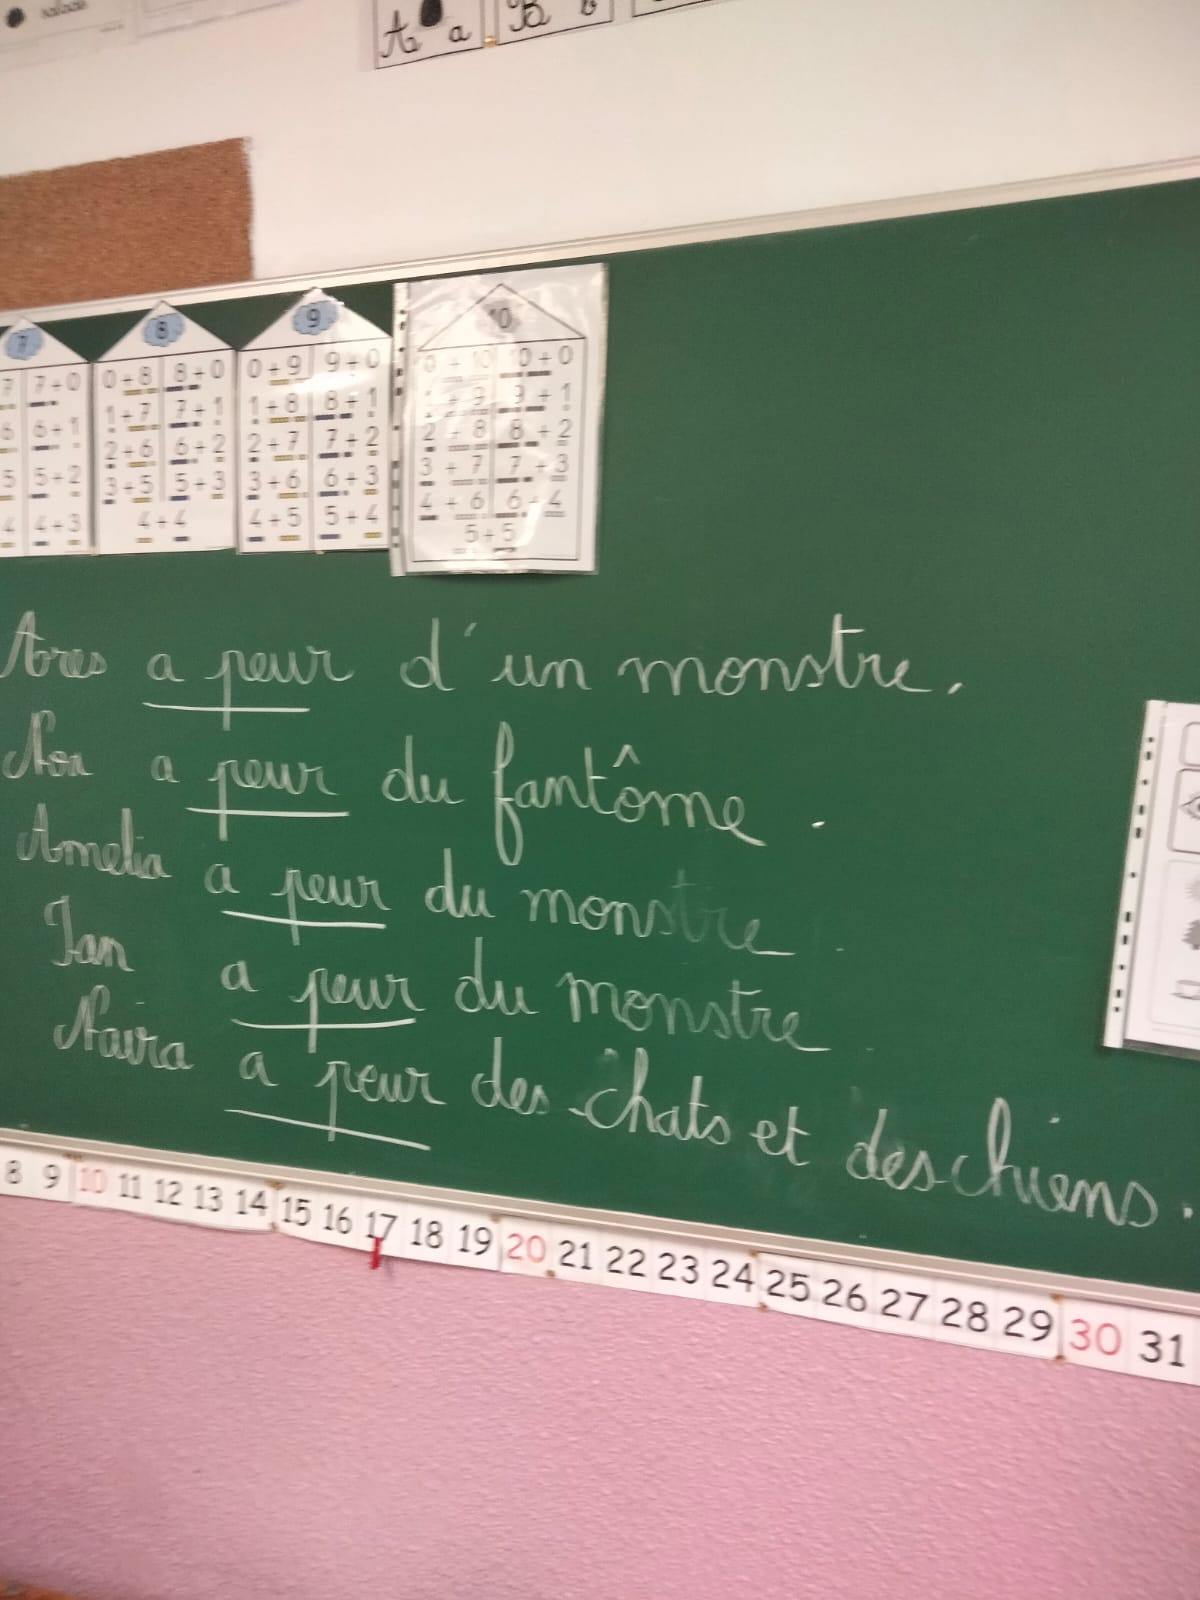 A a B b
7 8 9 10
7 7+0 0+8 8+0 0+9 9+0 0+10 10+0
6 6+1 1+7 7+1 1+8 8+1 1+9 9+1
5 5+2 2+6 6+2 2+7 7+2 2+8 8+2
4 4+3 3+5 5+3 3+6 6+3 3+7 7+3
4+4 4+5 5+4 4+6 6+4
5+5
Ares a peur d'un monstre.
Noa a peur du fantôme.
Amelia a peur du monstre.
Ian a peur du monstre.
Naira a peur des chats et des chiens.
8 9 10 11 12 13 14 15 16 17 18 19 20 21 22 23 24 25 26 27 28 29 30 31